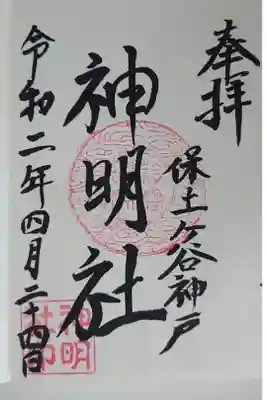 奉拝
保土ヶ谷神戸
神明社
令和二年四月二十四日
神明社印